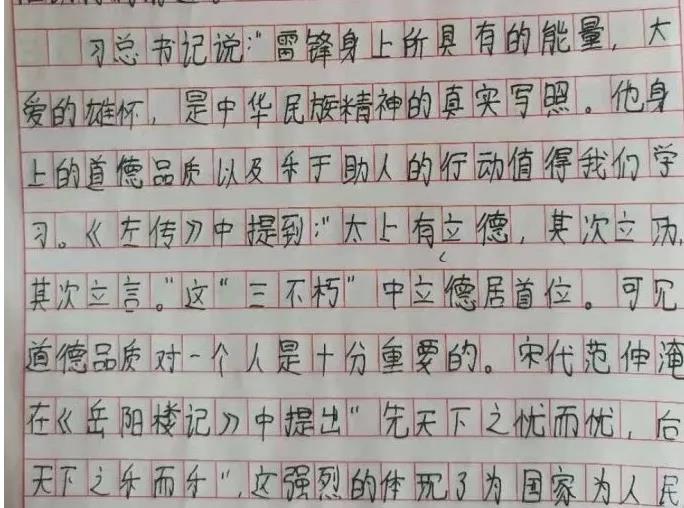 习总书记说:"雷锋身上所具有的能量,大
爱的雄怀,是中华民族精神的真实写照。他身
上的道德品质以及乐于助人的行动值得我们学
习。《左传》中提到:"太上有立德,其次立功,
其次立言。"这"三不朽"中立德居首位。可见
道德品质对一个人是十分重要的。宋代范仲淹
在《岳阳楼记》中提出"先天下之忧而忧,后
天下之乐而乐",这强烈的体现了为国家为人民